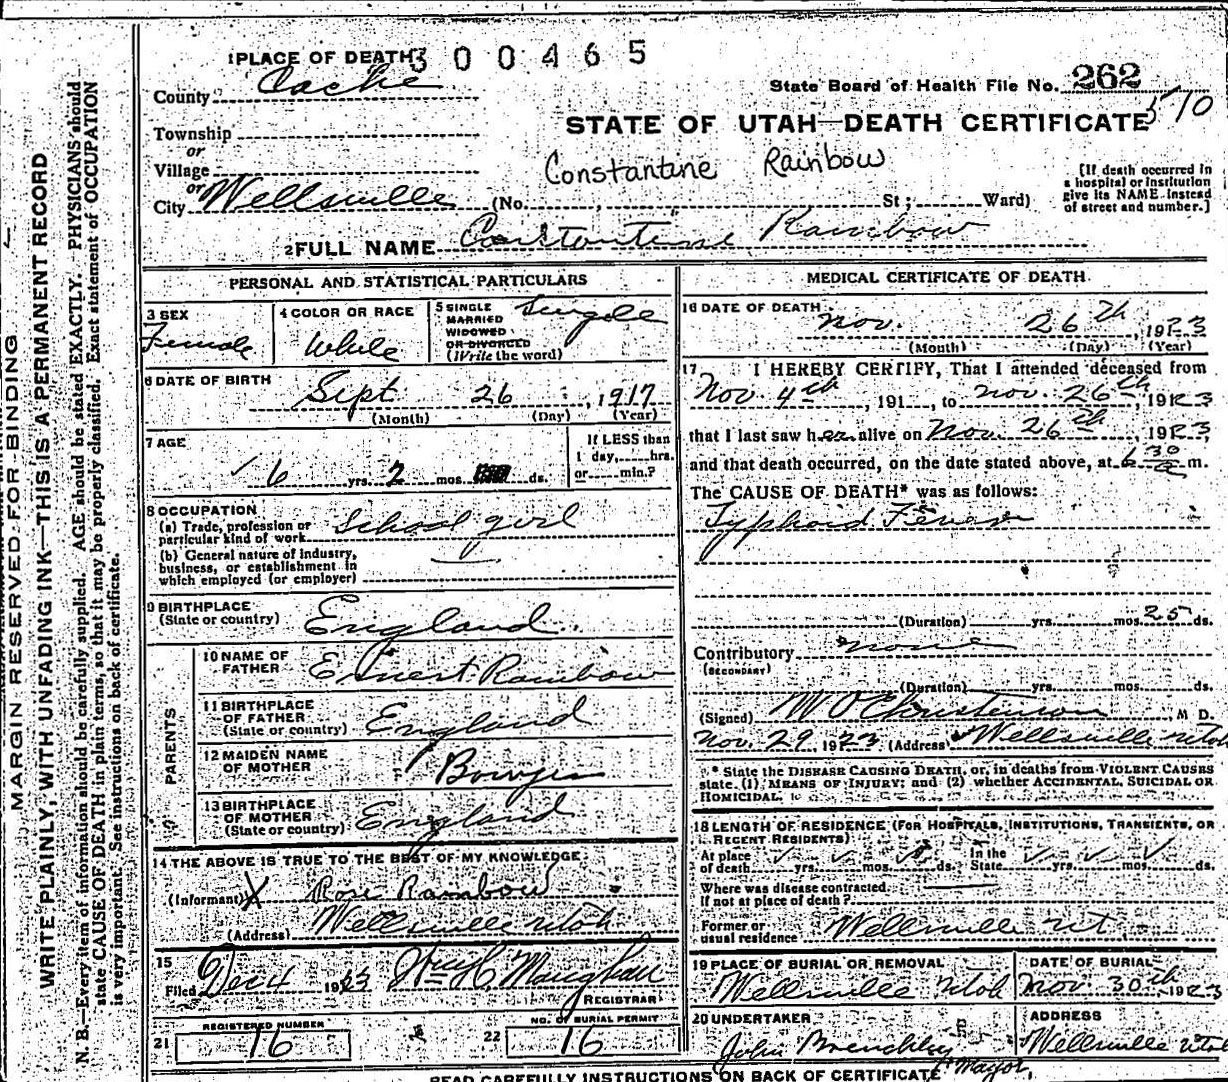 1 PLACE OF DEATH 300465
County Cache
State Board of Health File No. 262
510
Township
or
Village
or
City Wellsville (No. St; Ward)
STATE OF UTAH—DEATH CERTIFICATE
Constantine Rainbow
[If death occurred in
a hospital or institution
give its NAME instead
of street and number.]
2 FULL NAME Constantine Rainbow
PERSONAL AND STATISTICAL PARTICULARS
3 SEX
Female
4 COLOR OR RACE
White
5 SINGLE
MARRIED
WIDOWED
OR DIVORCED
(Write the word)
Single
6 DATE OF BIRTH
Sept 26, 1917
(Month) (Day) (Year)
7 AGE
6 yrs. 2 mos. ds.
If LESS than
1 day, hrs.
or min.?
8 OCCUPATION
(a) Trade, profession or
particular kind of work School girl
(b) General nature of industry,
business, or establishment in
which employed (or employer)
9 BIRTHPLACE
(State or country) England
PARENTS
10 NAME OF
FATHER Ernest Rainbow
11 BIRTHPLACE
OF FATHER
(State or country) England
12 MAIDEN NAME
OF MOTHER
13 BIRTHPLACE
OF MOTHER
(State or country) England
14 THE ABOVE IS TRUE TO THE BEST OF MY KNOWLEDGE
(Informant) X Rose Rainbow
(Address) Wellsville Utah
15
Filed Dec 4 1923 Wm H. Maughan
REGISTRAR
21 REGISTERED NUMBER
16
22 NO. OF BURIAL PERMIT
16
MEDICAL CERTIFICATE OF DEATH
16 DATE OF DEATH
Nov. 26th, 1923
(Month) (Day) (Year)
17 I HEREBY CERTIFY, That I attended deceased from
Nov. 4th, 191 , to Nov. 26th, 1923
that I last saw her alive on Nov. 26th, 1923,
and that death occurred, on the date stated above, at 6 30 m.
The CAUSE OF DEATH* was as follows:
Typhoid Fever
(Duration) yrs. mos. 25 ds.
Contributory none
(SECONDARY)
(Duration) yrs. mos. ds.
(Signed) W O Christenson, M D.
Nov. 29 1923 (Address) Wellsville Utah
* State the DISEASE CAUSING DEATH, or, in deaths from VIOLENT CAUSES
state (1) MEANS OF INJURY; and (2) whether ACCIDENTAL, SUICIDAL OR
HOMICIDAL.
18 LENGTH OF RESIDENCE (FOR HOSPITALS, INSTITUTIONS, TRANSIENTS, OR
RECENT RESIDENTS)
At place
of death yrs. mos. ds. In the
State yrs. mos. ds.
Where was disease contracted
If not at place of death?
Former or
usual residence Wellsville Ut.
19 PLACE OF BURIAL OR REMOVAL
Wellsville Utah
DATE OF BURIAL
Nov 30th, 1923
20 UNDERTAKER
John
Mayor.
ADDRESS
Wellsville Utah
READ CAREFULLY INSTRUCTIONS ON BACK OF CERTIFICATE
MARGIN RESERVED FOR BINDING
WRITE PLAINLY, WITH UNFADING INK—THIS IS A PERMANENT RECORD
N. B.—Every item of information should be carefully supplied. AGE should be stated EXACTLY. PHYSICIANS should
state CAUSE OF DEATH in plain terms, so that it may be properly classified. Exact statement of OCCUPATION
is very important. See instructions on back of certificate.